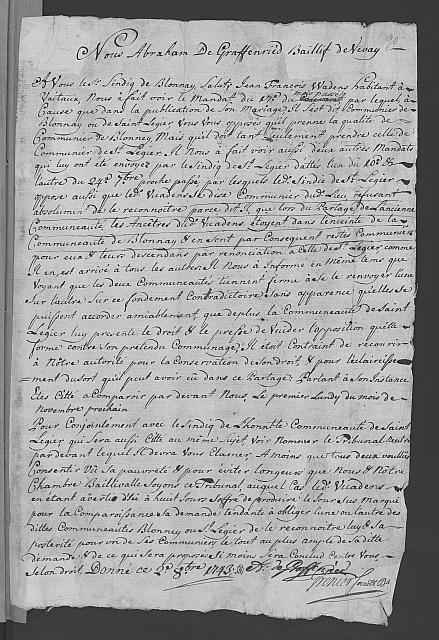 Nous Abraham De Graffenried Baillif de Vevay
A Vous le Sr. Sindiq de Blonnay Salut, Jean François Wadens habitant à
Vaitaux, Nous à fait voir le Mandat du du par lequel, à
Cause que dans la publication de son Mariage, Il s'est dit Communier de
Blonnay ou de Saint Legier Vous Vous opposés qu'il prenne la qualité de
Communier de Blonney, Mais qu'il doit tant seulement prendre celle de
Communier de St. Legier. Il Nous à fait voir aussi deux autres Mandats
qui luy ont été envoyez par le Sindiq de St. Legier dattés l'un du 16e. &
l'autre du 24e. 7bre proche passé par lesquels led. Sindiq de St. Legier
oppose aussi que led. Viadens se dise Communier dud. Lieu refusant
absolument de le reconnoitre parce dit il, que lors du Partage de l'ancienne
Communeauté, les Ancêtres dud. Viadens étoyent dans l'enceinte de la
Communeauté de Blonnay & en sont par Consequent restés Communiers
pour eux & leurs descendans par renonciation à Celle de St. Legier comme
Il en est arrivé à tous les autres. Il Nous à Informé en même tems que
Voyant que les deux Communeautés tiennent ferme à se le renvoyer l'une
sur l'autre sur ce fondement Contradictoire, Sans apparence qu'elles se
puissent accorder amiablement que de plus la Communeauté de Saint
Legier luy presente le droit & le presse de Vuider l'opposition qu'elle
forme contre son pretendu Communage; Il étoit Contraint de recourir
à Nôtre autorité pour la Conservation de son droit, & pour l'éclaircisse-
ment du sort qui peut avoir eü dans ce Partage. Partant à son Instance
Etes Citté à Comparoir par devant Nous, Le premier Lundy du mois de
Novembre prochain
Pour Conjointement avec le Sindiq de L'honnête Communeauté de Saint
Legier qui sera aussi Citté au même Sujet, Voir Nommer le Tribunal Neutre
par devant lequel Il devra Vous Clamer, A moins que tous deux vouliés
Consentir Vü sa pauvreté & pour éviter longeurs que Nous & Nôtre
Chambre Baillivalle Soyons ce Tribunal, auquel Cas led. Viadens
en étant avertis d'ici à huit Jours s'offre de produire le Jour sus marqué
pour la Comparoissance sa demande tendante à obliger l'une ou l'autre des
dittes Communeautés Blonney ou St. Legier de le reconnoitre luy & sa
posterité pour un de ses Communiers le tout au plus ample de sa ditte
demande & de ce qui sera proposé, Si moins sera Conclud Contre Vous
selon droit. Donné ce 2e. 8bre 1743. de Graffenried